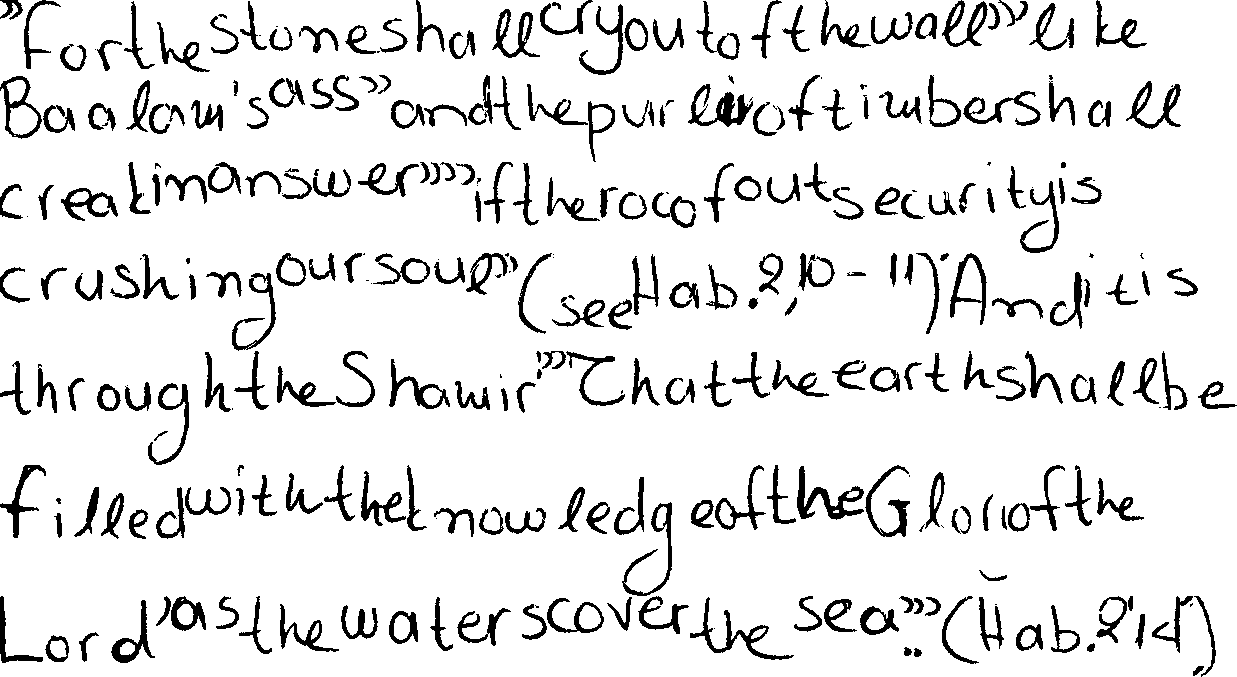 "For the stone shall cry out of the wall"" like
Baalam's ass" and the purlin of timber shall
creak in answer"" if the roco f out security is
crushing our soul" (see Hab.2,10-11) And it is
through the Shamir "That the earth shall be
filled with the knowledge of the Glori of the
Lord 'as the waters cover the sea..." (Hab.2'14)